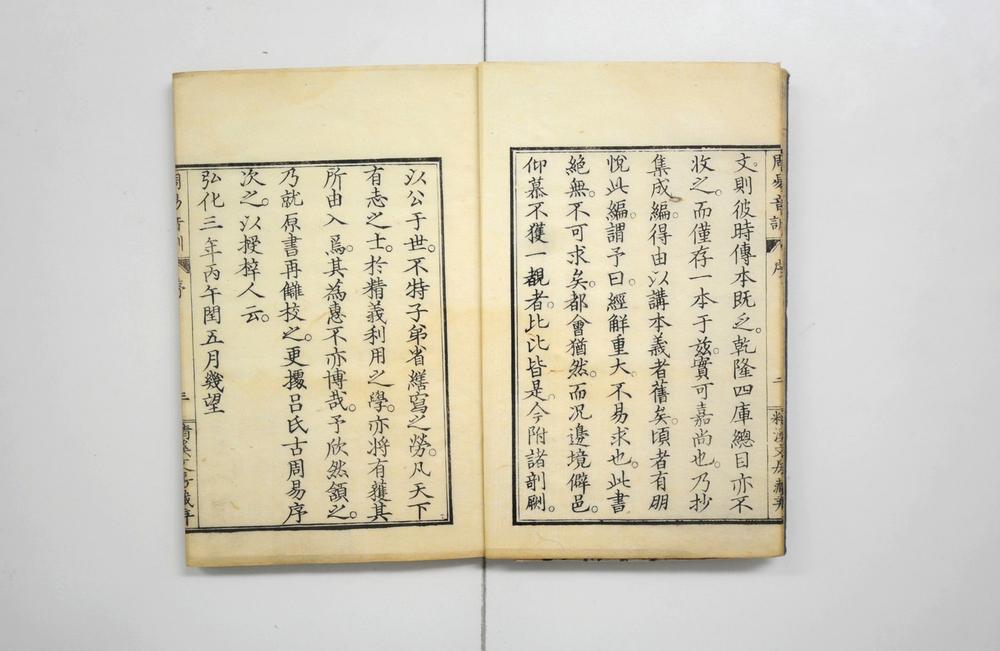 周易音訓 序 二
文則彼時傳本既乏。乾隆四庫總目亦不
收之。而僅存一本于兹。實可嘉尚也。乃抄
集成編。得由以講本義者舊矣。頃者有朋
悅此編。謂予曰。經解重大。不易求也。此書
絕無。不可求矣。都會猶然。而況邊境僻邑。
仰慕不獲一覯者。比比皆是。今附諸剞劂。
以公于世。不特子弟省繕寫之勞。凡天下
有志之士。於精義利用之學。亦將有獲其
所由入焉。其為惠不亦博哉。予欣然頷之。
乃就原書再讎校之。更據呂氏古周易序
次之。以授梓人云。
弘化三年丙午閏五月幾望
周易音訓 序 三